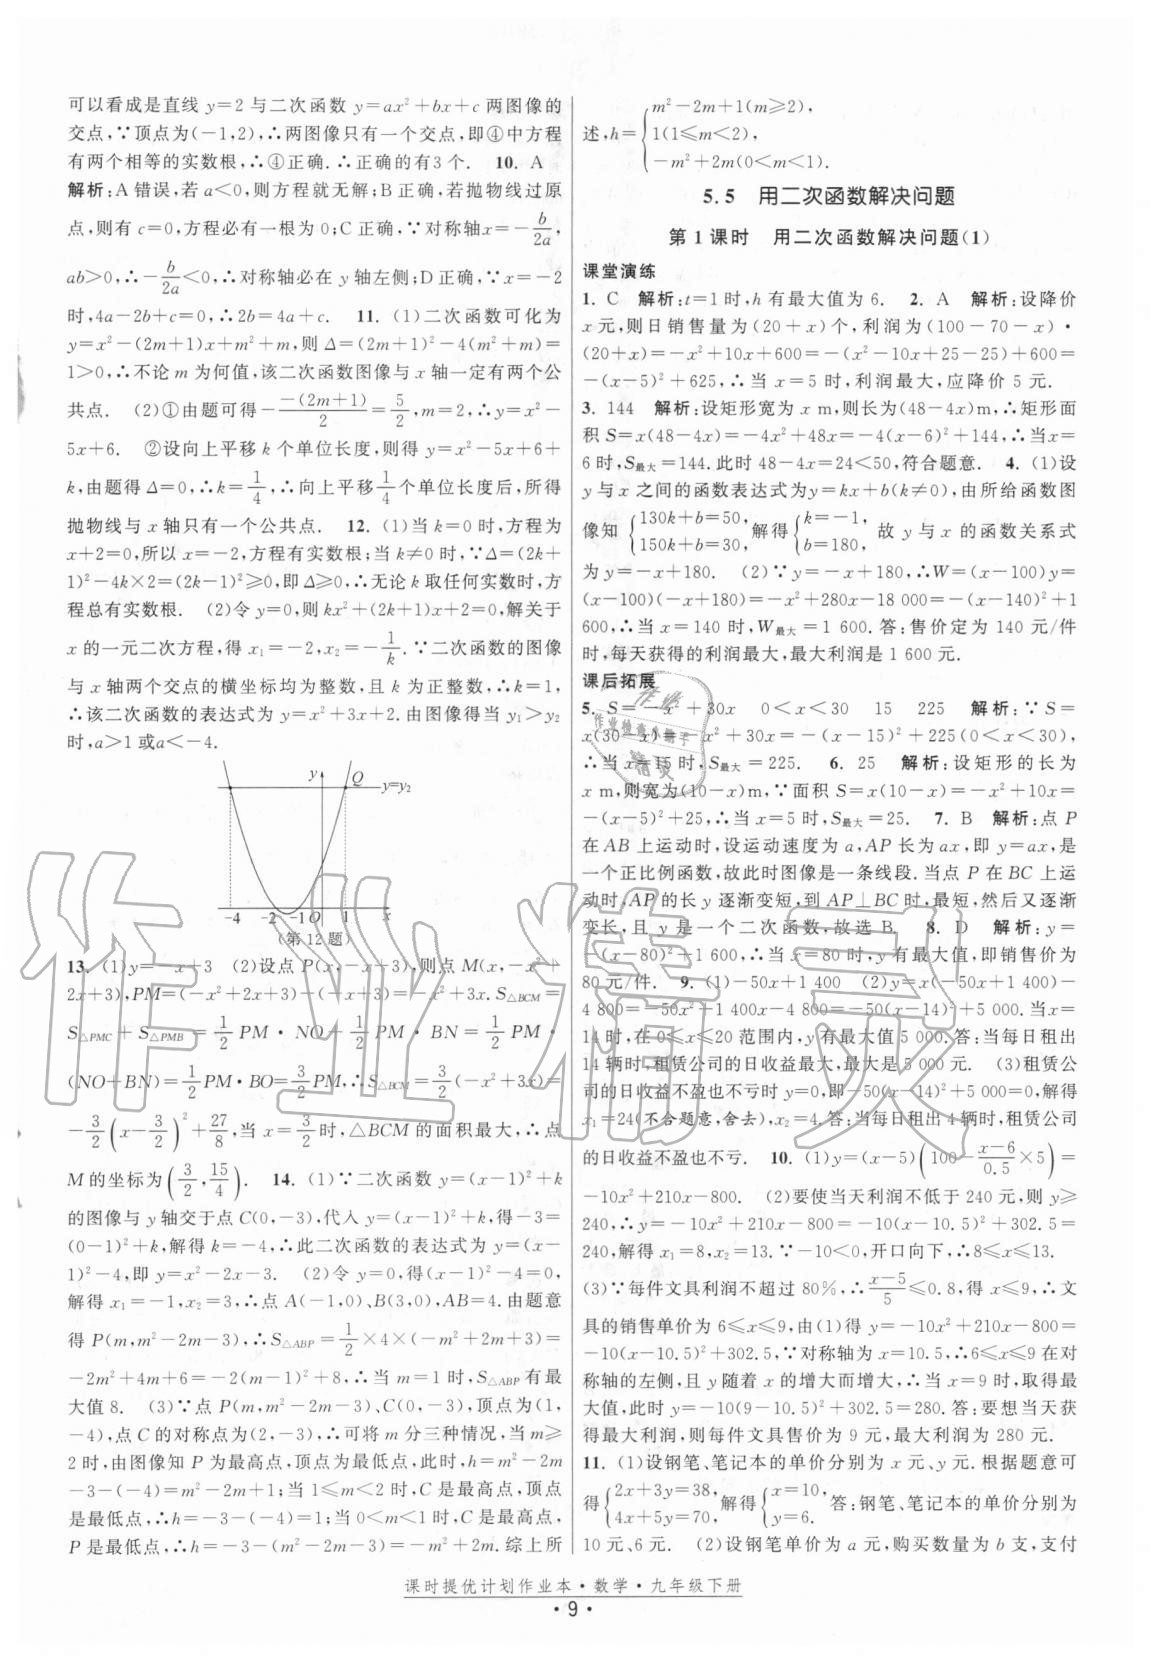 可以看成是直线 y=2 与二次函数 y=ax²+bx+c 两图像的
交点,∵顶点为(-1,2),∴两图像只有一个交点,即④中方程
有两个相等的实数根,∴④正确.∴正确的有3 个. 10. A
解析:A 错误,若 a<0,则方程就无解;B 正确,若抛物线过原
点,则有 c=0,方程必有一根为 0;C 正确,∵对称轴x=-b/2a,
ab>0,∴-b/2a<0,∴对称轴必在 y 轴左侧;D 正确,∵x=-2
时,4a-2b+c=0,∴2b=4a+c. 11. (1)二次函数可化为
y=x²-(2m+1)x+m²+m,则Δ=(2m+1)²-4(m²+m)=
1>0,∴不论 m 为何值,该二次函数图像与 x 轴一定有两个公
共点. (2)①由题可得--(2m+1)/2=5/2,m=2,∴y=x²-
5x+6. ②设向上平移 k 个单位长度,则得 y=x²-5x+6+
k,由题得Δ=0,∴k=1/4,∴向上平移1/4个单位长度后,所得
抛物线与 x 轴只有一个公共点. 12. (1)当 k=0 时,方程为
x+2=0,所以 x=-2,方程有实数根;当 k≠0 时,∵Δ=(2k+
1)²-4k×2=(2k-1)²≥0,即Δ≥0,∴无论 k 取任何实数时,方
程总有实数根. (2)令 y=0,则 kx²+(2k+1)x+2=0,解关于
x 的一元二次方程,得 x₁=-2,x₂=-1/k.∵二次函数的图像
与 x 轴两个交点的横坐标均为整数,且 k 为正整数,∴k=1,
∴该二次函数的表达式为 y=x²+3x+2.由图像得当 y₁>y₂
时,a>1 或a<-4.
y Q y=y₂
-4 -2 -1 O 1 x
(第 12 题)
13. (1)y=-x+3 (2)设点 P(x,-x+3),则点 M(x,-x²+
2x+3),PM=(-x²+2x+3)-(-x+3)=-x²+3x.S△BCM=
S△PMC+S△PMB=1/2PM·NO+1/2PM·BN=1/2PM·
(NO+BN)=1/2PM·BO=3/2PM,∴S△BCM=3/2(-x²+3x)=
-3/2(x-3/2)²+27/8,当 x=3/2时,△BCM 的面积最大,∴点
M 的坐标为(3/2,15/4). 14. (1)∵二次函数 y=(x-1)²+k
的图像与 y 轴交于点 C(0,-3),代入 y=(x-1)²+k,得-3=
(0-1)²+k,解得 k=-4,∴此二次函数的表达式为 y=(x-
1)²-4,即 y=x²-2x-3. (2)令 y=0,得(x-1)²-4=0,
解得 x₁=-1,x₂=3,∴点 A(-1,0)、B(3,0),AB=4.由题意
得 P(m,m²-2m-3),∴S△ABP=1/2×4×(-m²+2m+3)=
-2m²+4m+6=-2(m-1)²+8,∴当 m=1 时,S△ABP有最
大值 8. (3)∵点 P(m,m²-2m-3)、C(0,-3),顶点为(1,
-4),点 C 的对称点为(2,-3),∴可将 m 分三种情况,当 m≥
2 时,由图像知 P 为最高点,顶点为最低点,此时,h=m²-2m
-3-(-4)=m²-2m+1;当 1≤m<2 时,C 是最高点,顶点
是最低点,∴h=-3-(-4)=1;当 0<m<1 时,C 是最高点,
P 是最低点,∴h=-3-(m²-2m-3)=-m²+2m.综上所
述,h={m²-2m+1(m≥2),
1(1≤m<2),
-m²+2m(0<m<1).
5.5 用二次函数解决问题
第 1 课时 用二次函数解决问题(1)
课堂演练
1. C 解析:t=1 时,h 有最大值为 6. 2. A 解析:设降价
x 元,则日销售量为(20+x)个,利润为(100-70-x)·
(20+x)=-x²+10x+600=-(x²-10x+25-25)+600=
-(x-5)²+625,∴当 x=5 时,利润最大,应降价 5 元.
3. 144 解析:设矩形宽为 x m,则长为(48-4x)m,∴矩形面
积 S=x(48-4x)=-4x²+48x=-4(x-6)²+144,∴当x=
6 时,S最大=144.此时 48-4x=24<50,符合题意. 4. (1)设
y 与 x 之间的函数表达式为y=kx+b(k≠0),由所给函数图
像知{130k+b=50,150k+b=30,解得{k=-1,b=180,故 y 与 x 的函数关系式
为 y=-x+180. (2)∵y=-x+180,∴W=(x-100)y=
(x-100)(-x+180)=-x²+280x-18 000=-(x-140)²+1
600,∴当 x=140 时,W最大=1 600.答:售价定为 140 元/件
时,每天获得的利润最大,最大利润是 1 600 元.
课后拓展
5. S=-x²+30x 0<x<30 15 225 解析:∵S=
x(30-x)=-x²+30x=-(x-15)²+225(0<x<30),
∴当 x=15 时,S最大=225. 6. 25 解析:设矩形的长为
x m,则宽为(10-x)m,∵面积 S=x(10-x)=-x²+10x=
-(x-5)²+25,∴当 x=5 时,S最大=25. 7. B 解析:点 P
在 AB 上运动时,设运动速度为 a,AP 长为 ax,即 y=ax,是
一个正比例函数,故此时图像是一条线段.当点 P 在 BC 上运
动时,AP 的长 y 逐渐变短,到 AP⊥BC 时,最短,然后又逐渐
变长,且 y 是一个二次函数,故选 B. 8. D 解析:y=
-(x-80)²+1 600,∴x=80 时,y 有最大值,即销售单价为
80 元/件. 9. (1)-50x+1 400 (2)y=x(-50x+1 400)-
4 800=-50x²+1 400x-4 800=-50(x-14)²+5 000.当x=
14 时,在 0≤x≤20 范围内,y 有最大值 5 000.答:当每日租出
14 辆时,租赁公司的日收益最大,最大是 5 000 元. (3)租赁公
司的日收益不盈也不亏时 y=0,即-50(x-14)²+5 000=0,解得
x₁=24(不合题意,舍去),x₂=4.答:当每日租出 4 辆时,租赁公司
的日收益不盈也不亏. 10. (1)y=(x-5)(100-x-6/0.5×5)=
-10x²+210x-800. (2)要使当天利润不低于 240 元,则 y≥
240,∴y=-10x²+210x-800=-10(x-10.5)²+302.5=
240,解得 x₁=8,x₂=13.∵-10<0,开口向下,∴8≤x≤13.
(3)∵每件文具利润不超过 80%,∴x-5/5≤0.8,得 x≤9,∴文
具的销售单价为 6≤x≤9,由(1)得 y=-10x²+210x-800=
-10(x-10.5)²+302.5,∵对称轴为 x=10.5,∴6≤x≤9 在对
称轴的左侧,且 y随着 x 的增大而增大,∴当 x=9 时,取得最
大值,此时 y=-10(9-10.5)²+302.5=280.答:要想当天获
得最大利润,则每件文具售价为 9 元,最大利润为 280 元.
11. (1)设钢笔、笔记本的单价分别为 x 元、y 元.根据题意可
得{2x+3y=38,4x+5y=70,解得{x=10,y=6.答:钢笔、笔记本的单价分别为
10 元、6 元. (2)设钢笔单价为 a 元,购买数量为 b 支,支付
课时提优计划作业本·数学·九年级下册
·9·
作业精灵
作业
作业检查小助手
精灵